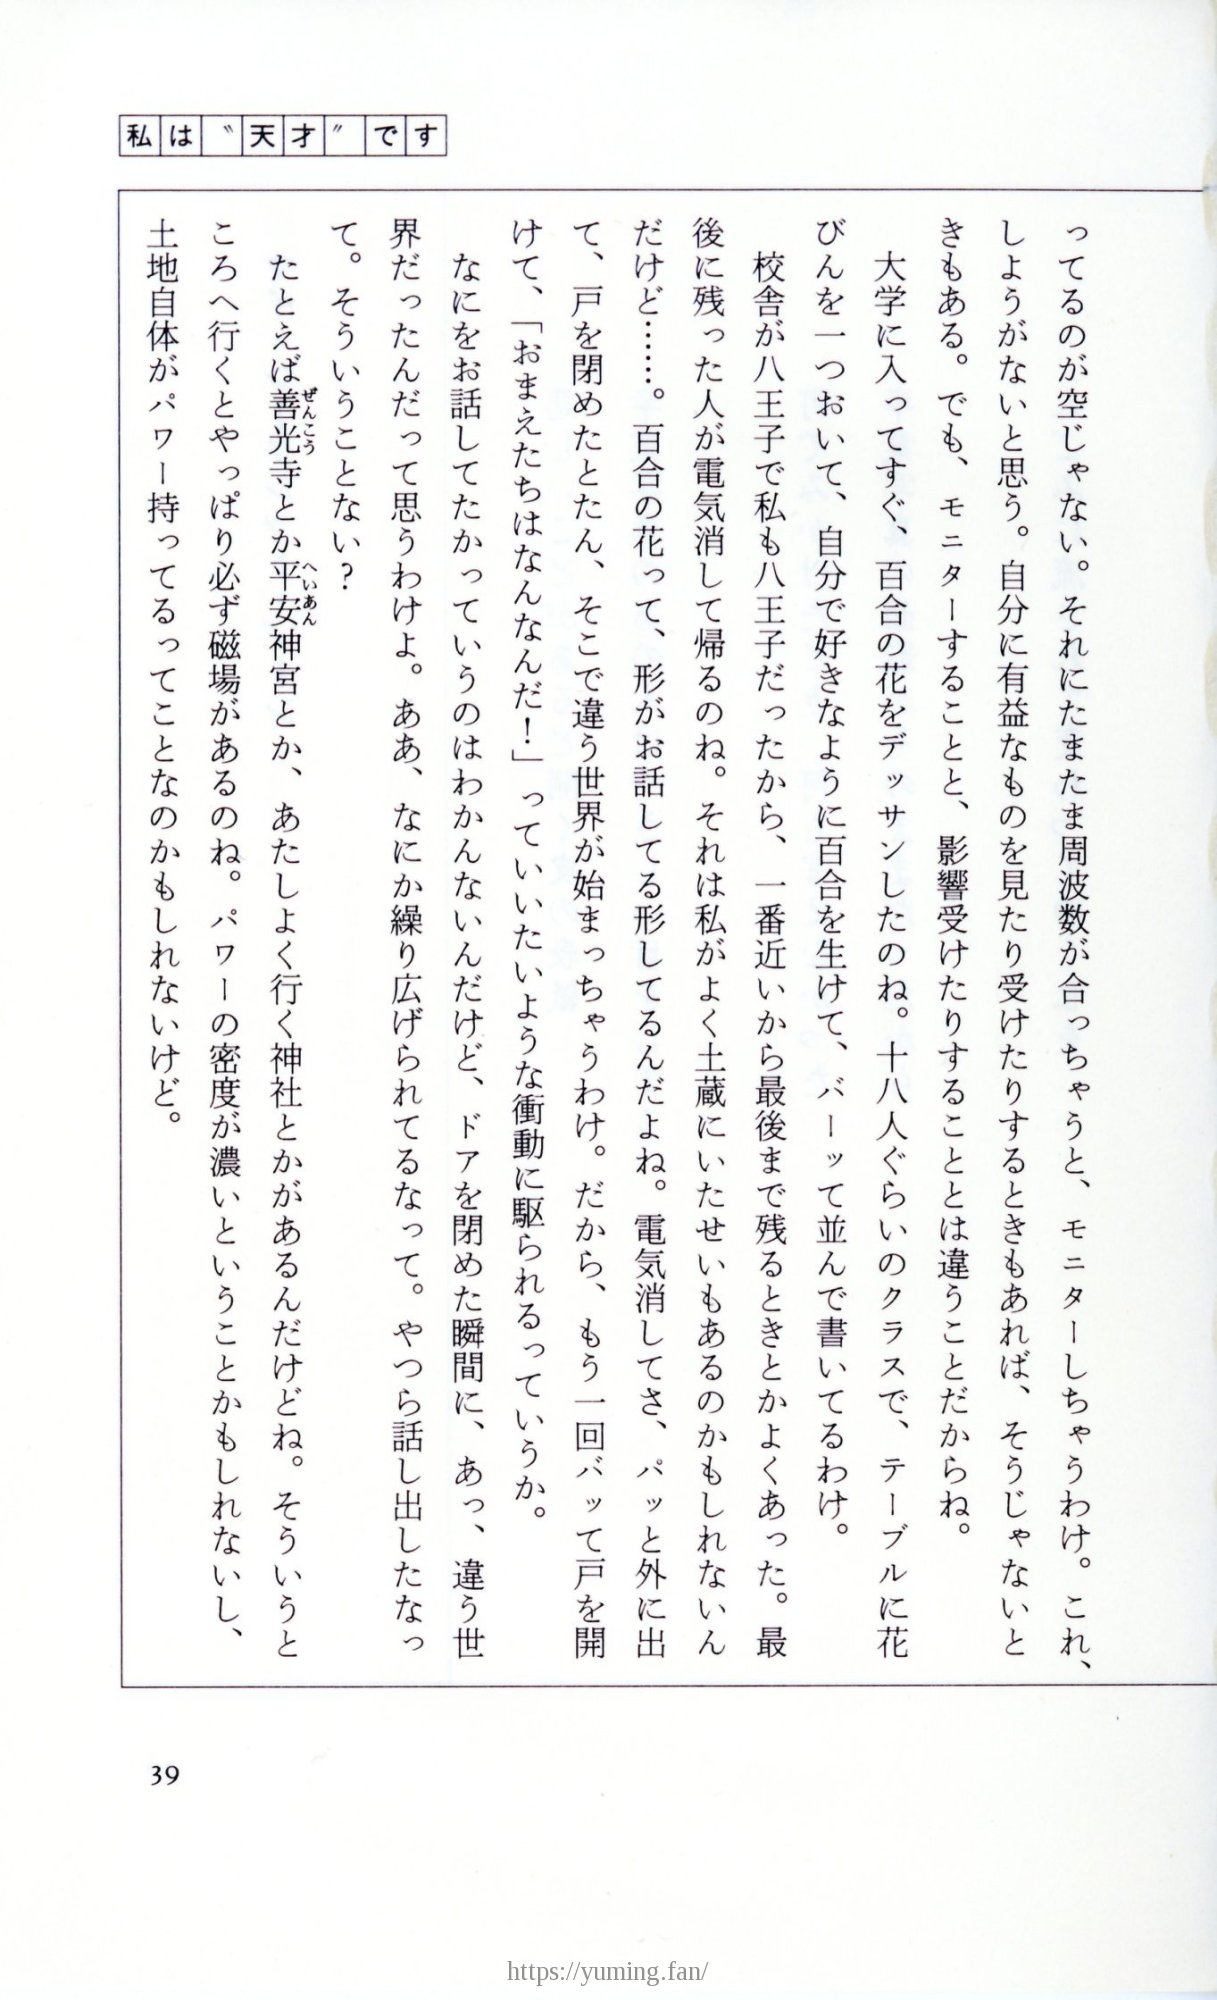 私は〝天才〟です
ってるのが空じゃない。それにたまたま周波数が合っちゃうと、モニターしちゃうわけ。これ、
しようがないと思う。自分に有益なものを見たり受けたりするときもあれば、そうじゃないと
きもある。でも、モニターすることと、影響受けたりすることとは違うことだからね。
大学に入ってすぐ、百合の花をデッサンしたのね。十八人ぐらいのクラスで、テーブルに花
びんを一つおいて、自分で好きなように百合を生けて、バーッて並んで書いてるわけ。
校舎が八王子で私も八王子だったから、一番近いから最後まで残るときとかよくあった。最
後に残った人が電気消して帰るのね。それは私がよく土蔵にいたせいもあるのかもしれないん
だけど……。百合の花って、形がお話してる形してるんだよね。電気消してさ、パッと外に出
て、戸を閉めたとたん、そこで違う世界が始まっちゃうわけ。だから、もう一回バッて戸を開
けて、「おまえたちはなんなんだ!」っていいたいような衝動に駆られるっていうか。
なにをお話してたかっていうのはわかんないんだけど、ドアを閉めた瞬間に、あっ、違う世
界だったんだって思うわけよ。ああ、なにか繰り広げられてるなって。やつら話し出したなっ
て。そういうことない?
たとえば善光寺とか平安神宮とか、あたしよく行く神社とかがあるんだけどね。そういうと
ぜんこう
へいあん
ころへ行くとやっぱり必ず磁場があるのね。パワーの密度が濃いということかもしれないし、
土地自体がパワー持ってるってことなのかもしれないけど。
39
https://yuming.fan/